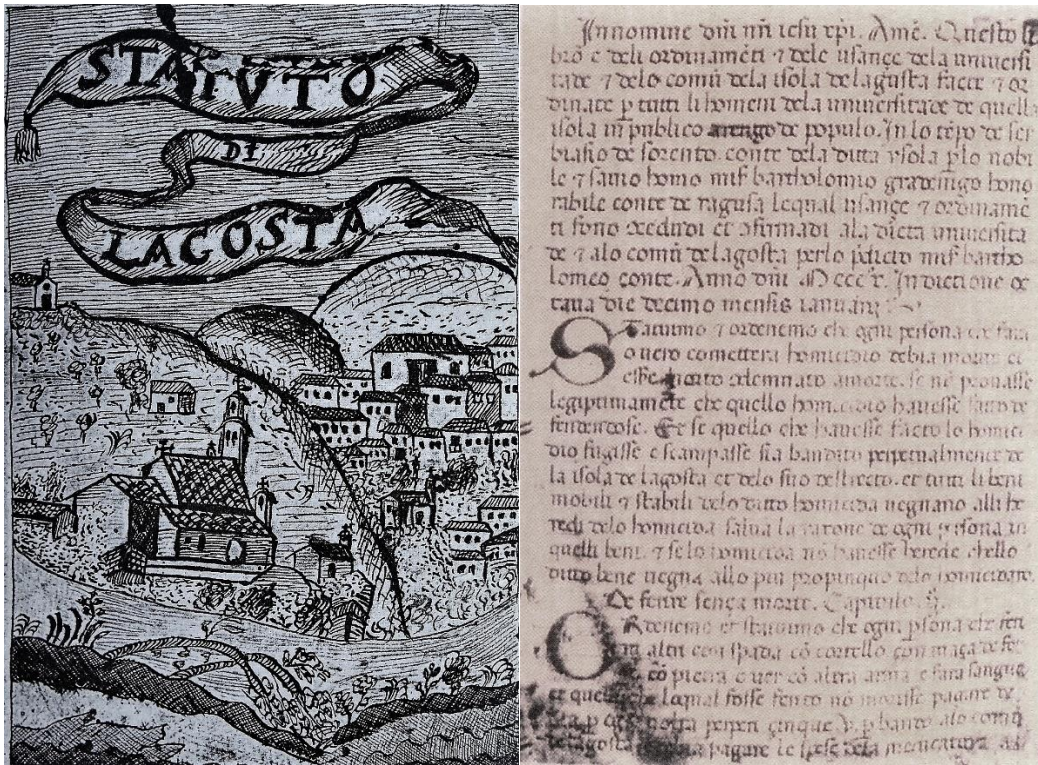 STATUTO
DI
LAGOSTA
In nomine dnī nrī iesu xpī. Amē. Questo
bro e deli ordinamēti ⁊ dele usançe dela universi
tade ⁊ delo comū dela isola de lagusta facte ⁊ or
dinate p tutti li homeni dela universitade de quella
isola in publico arengo de populo. In lo tēpo de ser
biasio de sorento conte dela ditta ysola plo nobi
le ⁊ savio homo mis bartholomio gradenigo hono
rabile conte de ragusa le qual usançe ⁊ ordinamē
ti sono cededi et cfirmadi ala dicta universita
de ⁊ alo comū de lagosta per lo pdicto mis bartho
lomeo conte. Anno dnī M ccc x. Indictione oc
tava die decimo mensis ianuarij
Statuimo ⁊ ordenemo che ogni persona che fara
o vero comettera homicidio debia morire et
esse morto cdemnato a morte. se nō provasse
legiptimamēte che quello homicidio havesse fatto de
fendendose. Et se quello che havesse facto lo homici
dio fugisse e scampasse sia bandito perpetualmente de
la isola de lagosta et delo suo destrecto. et tutti li beni
mobili ⁊ stabili delo ditto homicida vegnano alli he
redi delo homicida salva la rasone de ogni persona in
quelli beni. ⁊ se lo homicida nō havesse herede chello
ditto bene vegna allo piu propinquo delo homicidario.
De ferire sença morte. Capitulo ij.
Ordenemo et statuimo che ogni psona che feri
altri con spada cō cortello con maça de fer
cō pietra o ver cō altra arma e fara sangue
et quello che lo qual fosse ferito nō morisse pagare de
pena perperi çinque ⁊ p bando alo comū
de lagosta pagare le spese dela medicatura al